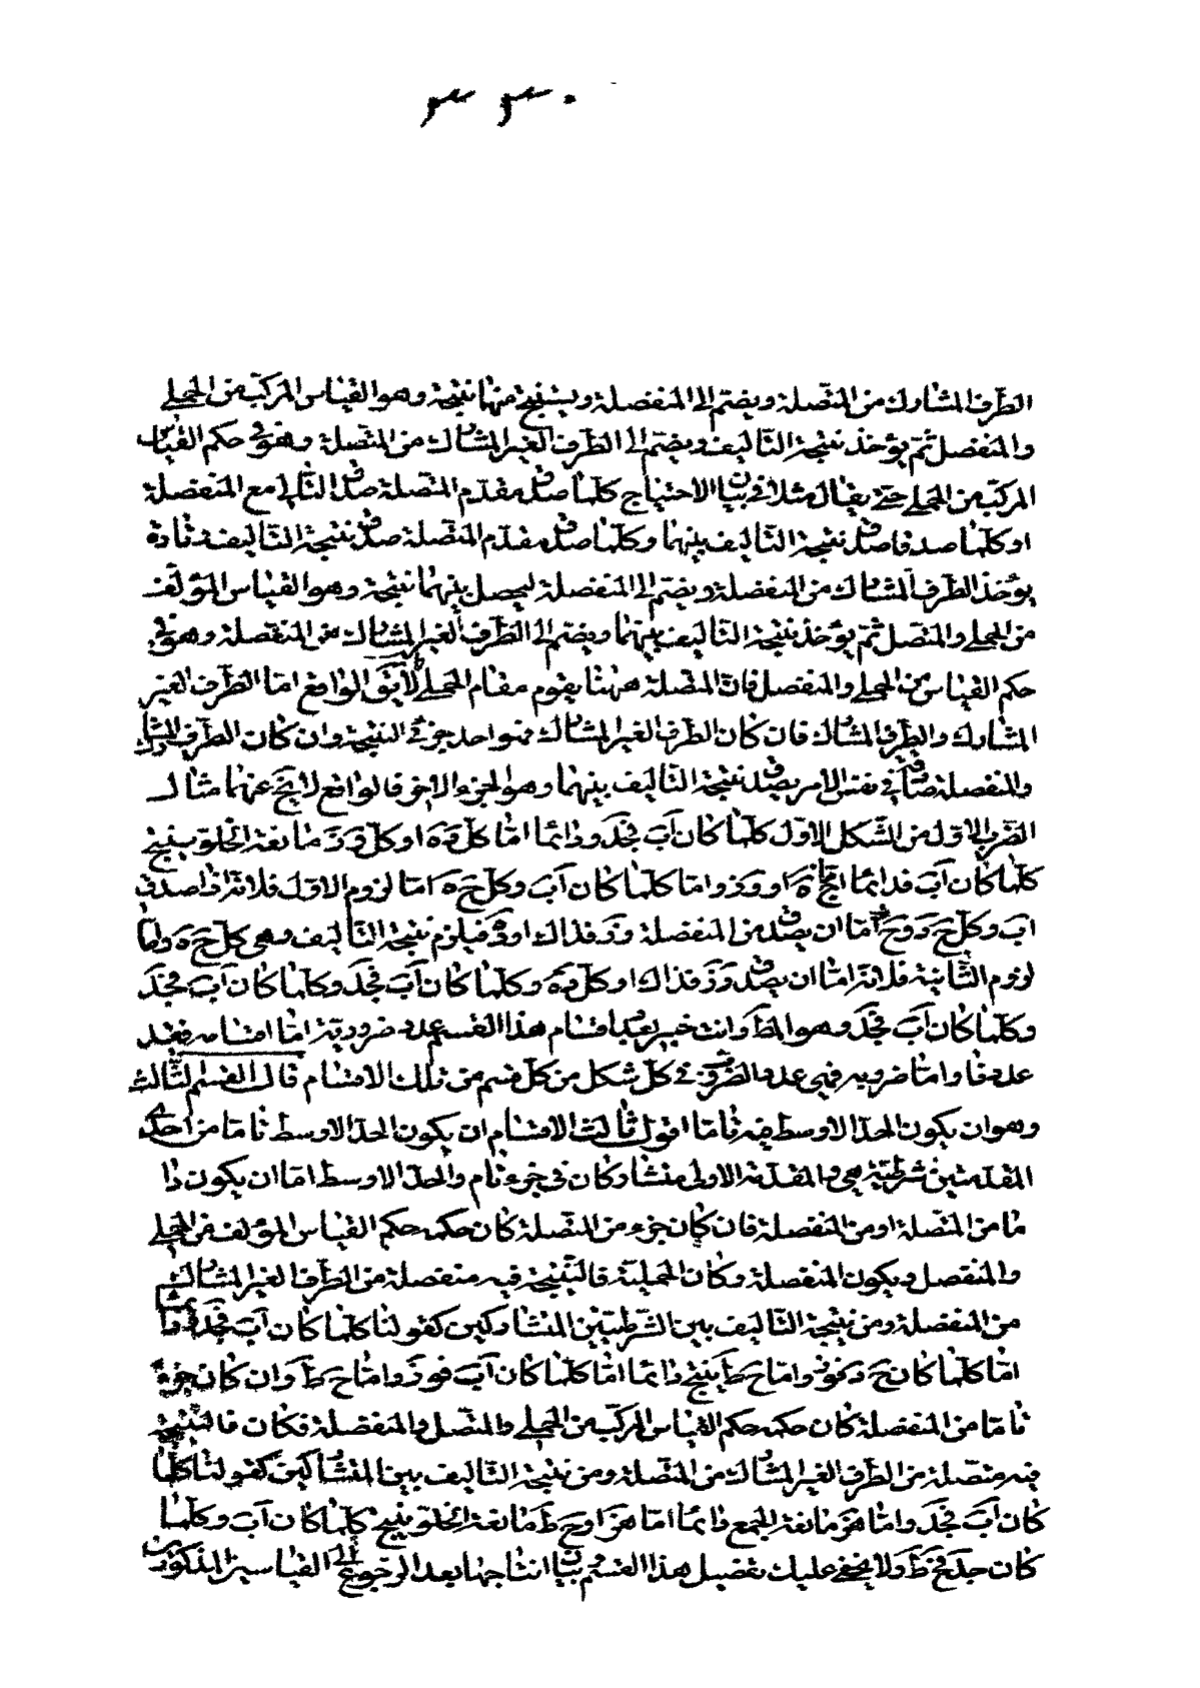 الطرف المشارك من المتصلة ويضم إلى المنفصلة ويستنتج منهما نتيجة وهو القياس المركب من الحملي
والمنفصل ثم يؤخذ نتيجة التأليف ويضم إلى الطرف الغير المشارك من المتصلة وهو في حكم القياس
المركب من الحملي حتى يقال مثلا في بيان الاحتياج كلما صدق مقدم المتصلة صدق التالي مع المنفصلة
او كلما صدقا صدق نتيجة التأليف بينهما وكلما صدق مقدم المتصلة صدق نتيجة التأليف وتارة
يؤخذ الطرف المشارك من المنفصلة ويضم إلى المنفصلة ليحصل بينهما نتيجة وهو القياس المؤلف
من الحملي والمتصل ثم يؤخذ نتيجة التأليف بينهما ويضم إلى الطرف الغير المشارك من المنفصلة وهو في
حكم القياس من الحملي والمنفصل فان المتصلة ههنا يقوم مقام الحملي لان في الواقع اما الطرف الغير
المشارك والطرف المشارك فان كان الطرف الغير المشارك فهو احد جزئي النتيجة وان كان الطرف المشارك
والمنفصلة صادقا في نفس الامر يصدق نتيجة التأليف بينهما وهو الجزء الاخر فالواقع لا يخ عنهما مثال
الضرب الاول من الشكل الاول كلما كان اب فجد ودائما اما كل ده او كل وز مانعة الخلو ينتج
كلما كان اب فدائما اما جه او وز واما كلما كان اب وكل جه اما لزوم الاول فلانه اذا صدق
اب وكل جد وح اما ان يصدق من المنفصلة وز فذاك او ده فيلزم نتيجة التأليف وهي كل جه واما
لزوم الثانية فلانه اما ان يصدق وز فذاك او كل ده وكلما كان اب فجد وكلما كان اب فجد
وكلما كان اب فجد وهو المط وانت خبير بعدد اقسام هذا القسم عدد ضروريه اما اقسامه فبعد
عدد قا واما ضروبه فهي عدد الضروب في كل شكل من كل قسم من تلك الاقسام قال القسم الثالث
وهو ان يكون الحد الاوسط فيه تاما اقول ثالث الاقسام ان يكون الحد الاوسط تاما من احدى
المقدمتين شرطية هي والمقدمة الاولى متشاركان في جزء تام والحد الاوسط اما ان يكون تا
ما من المتصلة او من المنفصلة فان كان جزء من المتصلة كان حكمه حكم القياس المؤلف من الحملي
والمنفصل ويكون المنفصلة مكان الحملية فالنتيجة فيه منفصلة من الطرف الغير المشارك
من المنفصلة ومن نتيجة التأليف بين الشرطيتين المتشاركين كقولنا كلما كان اب فجد دائما
اما كلما كان جد فوز واما ح ط ينتج دائما اما كلما كان اب فوز واما ح ط وان كان جزء
تاما من المنفصلة كان حكمه حكم القياس المركب من الحملي والمتصل والمنفصلة مكان فالنتيجة
فيه متصلة من الطرف الغير المشارك من المتصلة ومن نتيجة التأليف بين المتشاركين كقولنا كلما
كان اب فجد واما هز مانعة الجمع دائما اما هز او ح ط مانعة الخلو ينتج كلما كان اب وكلما
كان جد فح ط ولا يخفى عليك تفصيل هذا القسم وبيان انتاجها بعد الرجوع إلى القياسين المذكورين